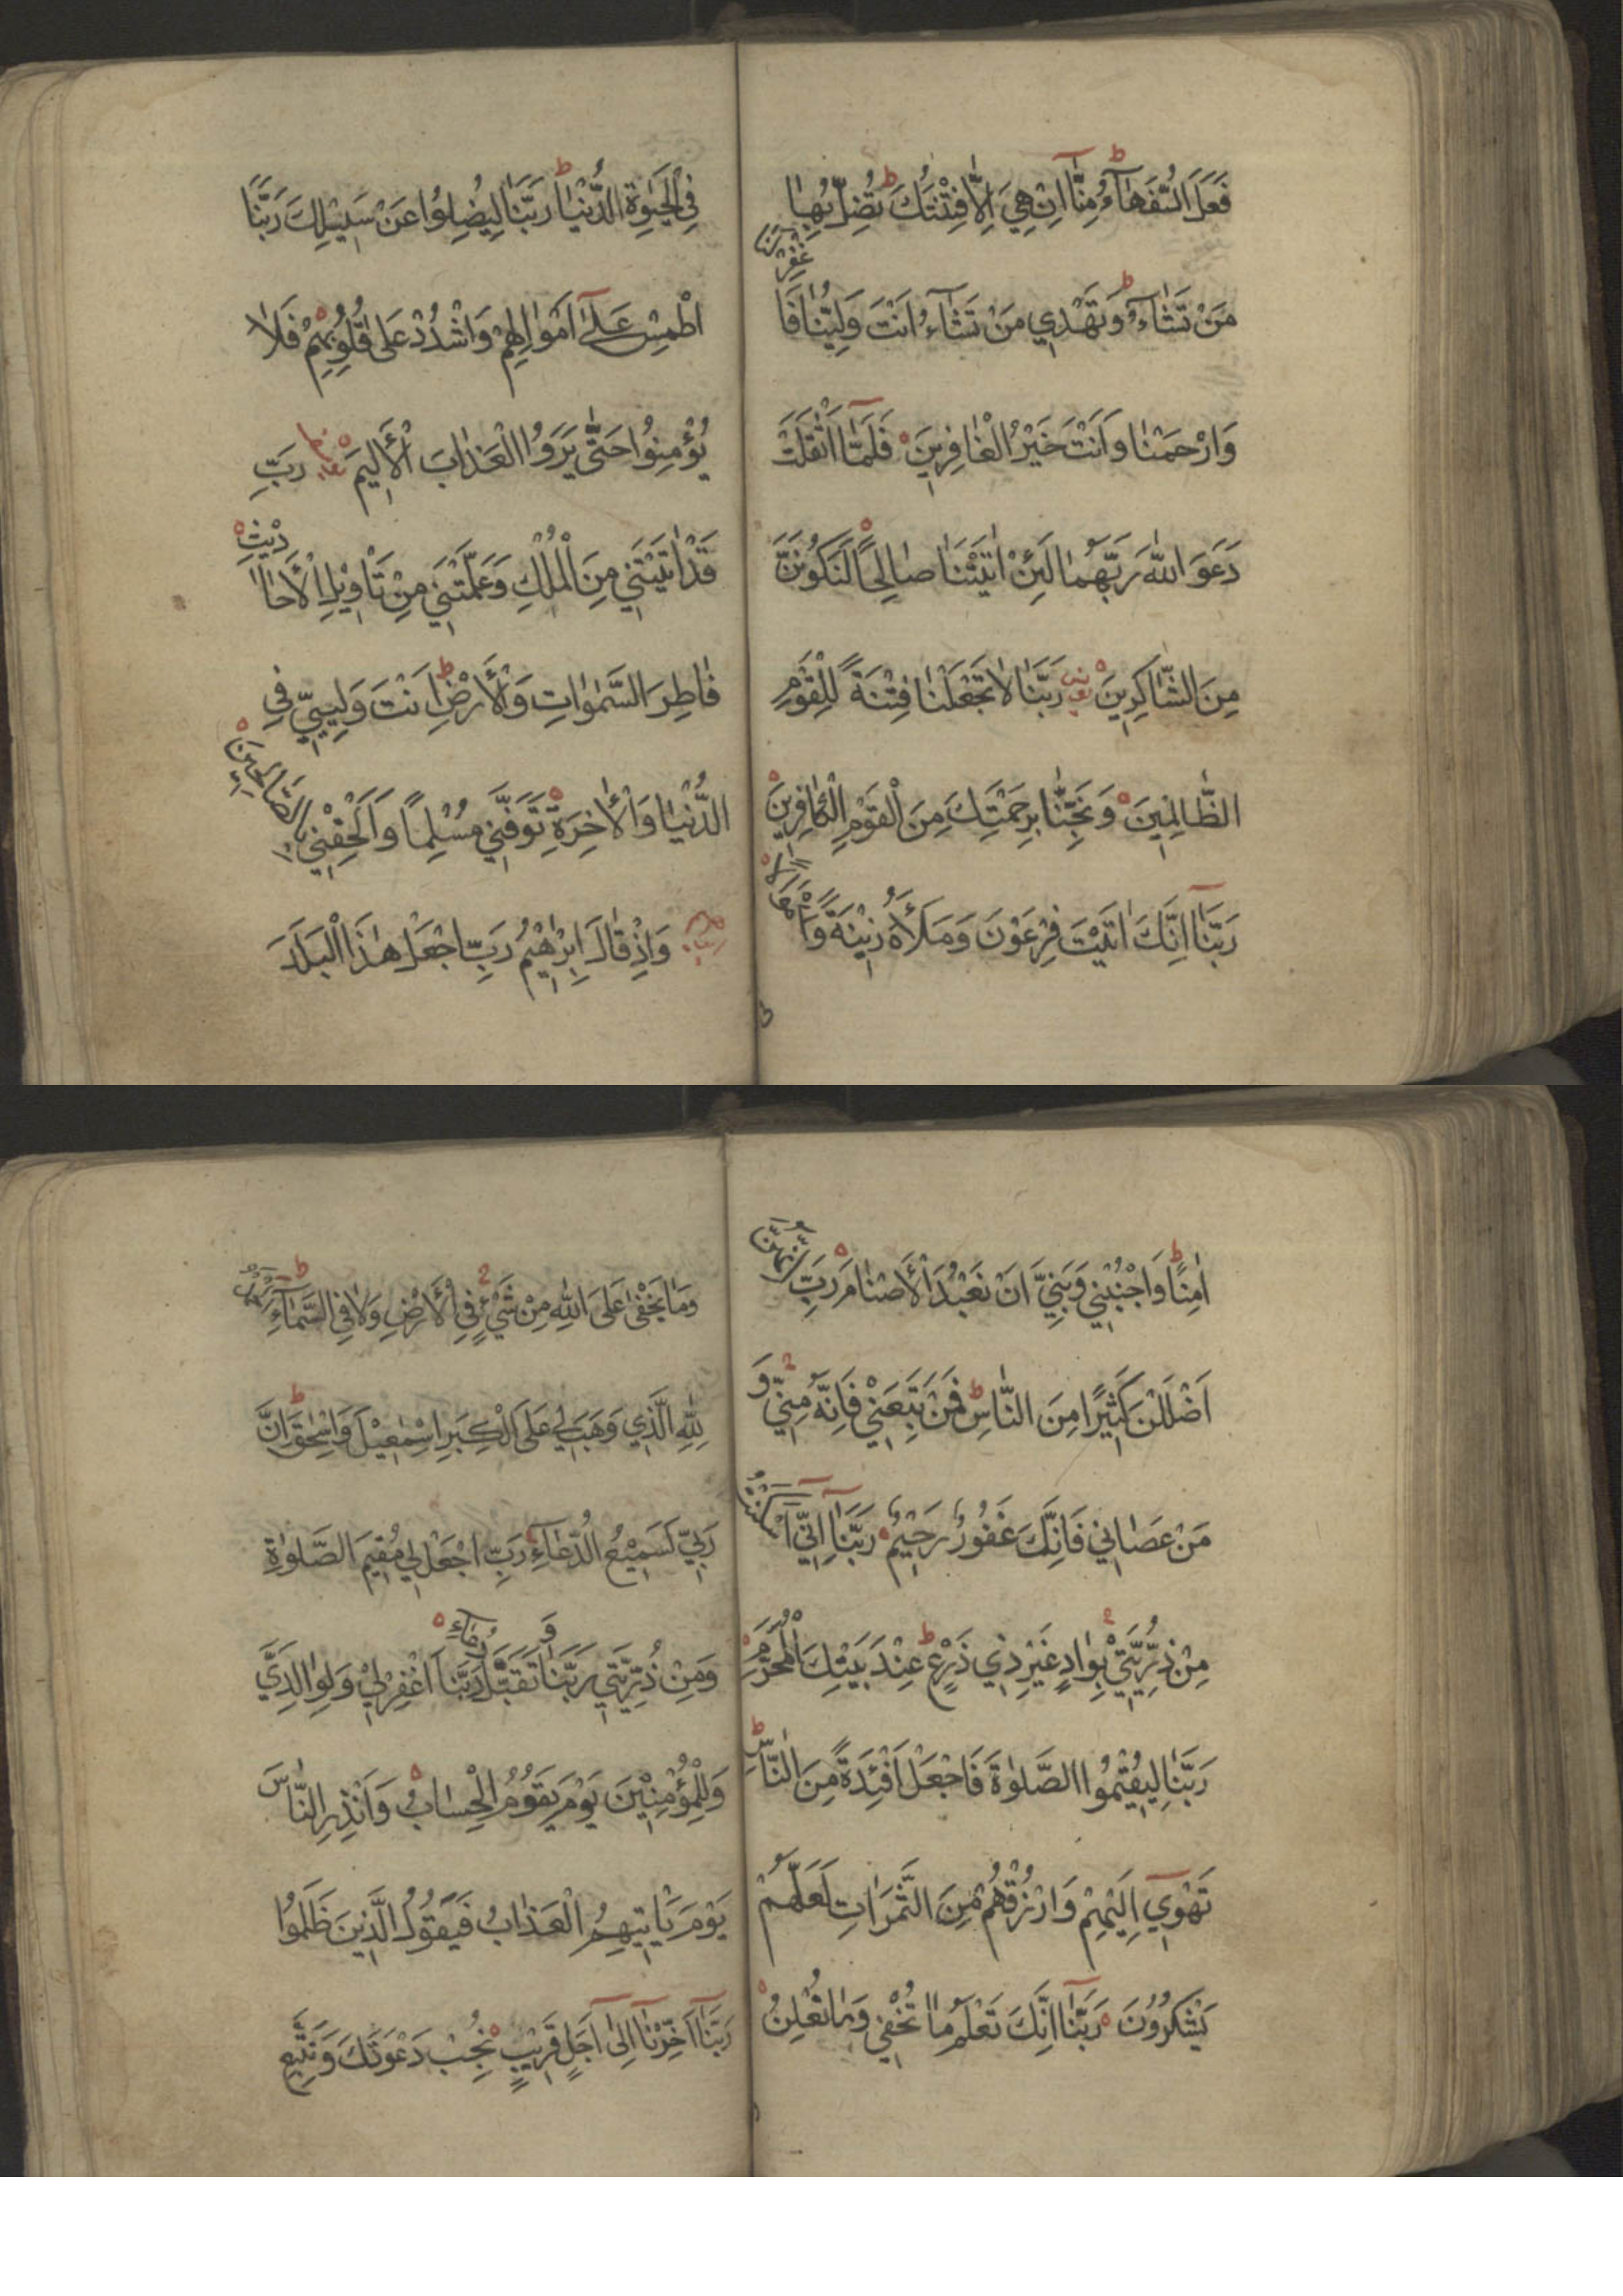 فَعَلَ السُّفَهَآءُ مِنَّا اِنْ هِيَ اِلَّا فِتْنَتُكَ ط تُضِلُّ بِهَا
مَنْ تَشَآءُ ط وَتَهْدِي مَنْ تَشَآءُ اَنْتَ وَلِيُّنَا فَاغْفِرْ لَنَا
وَارْحَمْنَا وَاَنْتَ خَيْرُ الْغَافِرِينَ فَلَمَّا اَثْقَلَتْ
دَعَوَا اللّٰهَ رَبَّهُمَا لَئِنْ اٰتَيْتَنَا صَالِحًا لَنَكُونَنَّ
مِنَ الشَّاكِرِينَ رَبَّنَا لَا تَجْعَلْنَا فِتْنَةً لِلْقَوْمِ
الظَّالِمِينَ وَنَجِّنَا بِرَحْمَتِكَ مِنَ الْقَوْمِ الْكَافِرِينَ
رَبَّنَا اِنَّكَ اٰتَيْتَ فِرْعَوْنَ وَمَلَأَهُ زِينَةً وَاَمْوَالًا
فِي الْحَيٰوةِ الدُّنْيَا ط رَبَّنَا لِيُضِلُّوا عَنْ سَبِيلِكَ رَبَّنَا
اطْمِسْ عَلٰى اَمْوَالِهِمْ وَاشْدُدْ عَلٰى قُلُوبِهِمْ فَلَا
يُؤْمِنُوا حَتّٰى يَرَوُا الْعَذَابَ الْأَلِيمَ رَبِّ
قَدْ اٰتَيْتَنِي مِنَ الْمُلْكِ وَعَلَّمْتَنِي مِنْ تَأْوِيلِ الْأَحَادِيثِ
فَاطِرَ السَّمٰوَاتِ وَالْأَرْضِ ط اَنْتَ وَلِيِّي فِي
الدُّنْيَا وَالْأٰخِرَةِ تَوَفَّنِي مُسْلِمًا وَاَلْحِقْنِي بِالصَّالِحِينَ
وَاِذْ قَالَ اِبْرٰهِيْمُ رَبِّ اجْعَلْ هٰذَا الْبَلَدَ
اٰمِنًا ط وَاجْنُبْنِي وَبَنِيَّ اَنْ نَعْبُدَ الْأَصْنَامَ رَبِّ اِنَّهُنَّ
اَضْلَلْنَ كَثِيرًا مِنَ النَّاسِ ط فَمَنْ تَبِعَنِي فَاِنَّهُ مِنِّي وَ
مَنْ عَصَانِي فَاِنَّكَ غَفُورٌ رَحِيمٌ رَبَّنَا اِنِّي اَسْكَنْتُ
مِنْ ذُرِّيَّتِي بِوَادٍ غَيْرِ ذِي زَرْعٍ ط عِنْدَ بَيْتِكَ الْمُحَرَّمِ
رَبَّنَا لِيُقِيْمُوا الصَّلٰوةَ فَاجْعَلْ اَفْئِدَةً مِنَ النَّاسِ ط
تَهْوِي اِلَيْهِمْ وَارْزُقْهُمْ مِنَ الثَّمَرَاتِ لَعَلَّهُمْ
يَشْكُرُونَ رَبَّنَا اِنَّكَ تَعْلَمُ مَا تُخْفِي وَمَا نُعْلِنُ
وَمَا يَخْفٰى عَلَى اللّٰهِ مِنْ شَيْءٍ فِي الْأَرْضِ وَلَا فِي السَّمَآءِ ط اَلْحَمْدُ
لِلّٰهِ الَّذِي وَهَبَ لِي عَلَى الْكِبَرِ اِسْمٰعِيْلَ وَاِسْحٰقَ ط اِنَّ
رَبِّي لَسَمِيْعُ الدُّعَآءِ رَبِّ اجْعَلْنِي مُقِيمَ الصَّلٰوةِ
وَمِنْ ذُرِّيَّتِي رَبَّنَا وَتَقَبَّلْ دُعَآءِ رَبَّنَا اغْفِرْ لِي وَلِوَالِدَيَّ
وَلِلْمُؤْمِنِيْنَ يَوْمَ يَقُومُ الْحِسَابُ وَاَنْذِرِ النَّاسَ
يَوْمَ يَأْتِيهِمُ الْعَذَابُ فَيَقُولُ الَّذِينَ ظَلَمُوا
رَبَّنَا اَخِّرْنَا اِلٰى اَجَلٍ قَرِيْبٍ نُجِبْ دَعْوَتَكَ وَنَتَّبِعِ